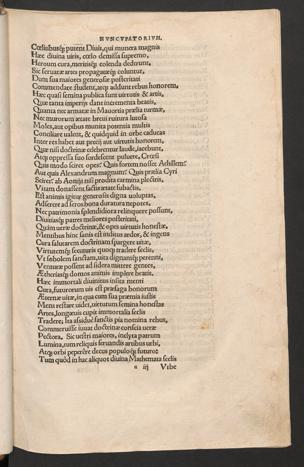 NVNCVPATORIVM.
Cœlitibusq; putent Diuis, qui munera magnis
Hæc diuina uiris, cœlo demissa supremo,
Heroum cura, meritisq; colenda dederunt.
Sic seruatæ artes propagatæq; coluntur,
Dum sua maiores generosæ posteritati
Commendare student, atq; addunt rebus honorem,
Hæc quasi semina publica sunt uirtutis & artis,
Quæ tanta imperij dant incrementa beatis,
Quanta nec armaræ in Mauortia prælia turmæ,
Nec murorum ætate breui ruitura
Moles, aut opibus munita potentia multis
Conciliare ualent, & quidquid in orbe caducas
Inter res habet aut precij aut uirtutis honorem,
Quæ nisi doctrinæ celebrentur laude, iacebunt,
Atq; oppressa suo sordescent puluere, Crœsi
Quis modo sciret opes? Quis fortem nosset Achillem?
Aut quis Alexandrum magnum? Quis prælia Cyri
Sciret? ab Aonijs nisi prodita carmina plectris,
Vitam donassent factis ætate subactis,
Est animis igitur generosis digna uoluptas,
Adserere ad seros bona duratura nepotes.
Nec patrimonia splendidiora relinquere possunt,
Diuitiasq; patres meliores posteritati,
Quàm ueræ doctrinæ, & opes uirtutis honestæ.
Mentibus hinc sanis est inditus ardor, & ingens
Cura salutarem doctrinam spargere uitæ,
Virtutemq; secuturis quoq; tradere seclis,
Vt sobolem sanctam, uita dignumq; perenni,
Venturæ possent ad sidera mittere gentes,
Æthereisq; domos animis implere beatis,
Hæc immortali diuinitus insita menti
Cura, futurorum uis est præsaga bonorum
Æternæ uitæ, in qua cum sua præmia iustis
Mens restare uidet, uirtutum semina honestas
Artes, longæuis cupit immortalia seclis
Tradere, ita assiduè sanctis pia nomina rebus,
Commeruisse iuuat doctrinæ conscia ueræ
Pectora. Sic uestri maiores, inclyta patrum
Lumina, cum reliquis seruandis artibus urbi,
Atq; orbi peperere decus populoq; futuro:
Tum quòd in hac aliquot diuina Mathemata seclis
a iij Vrbe